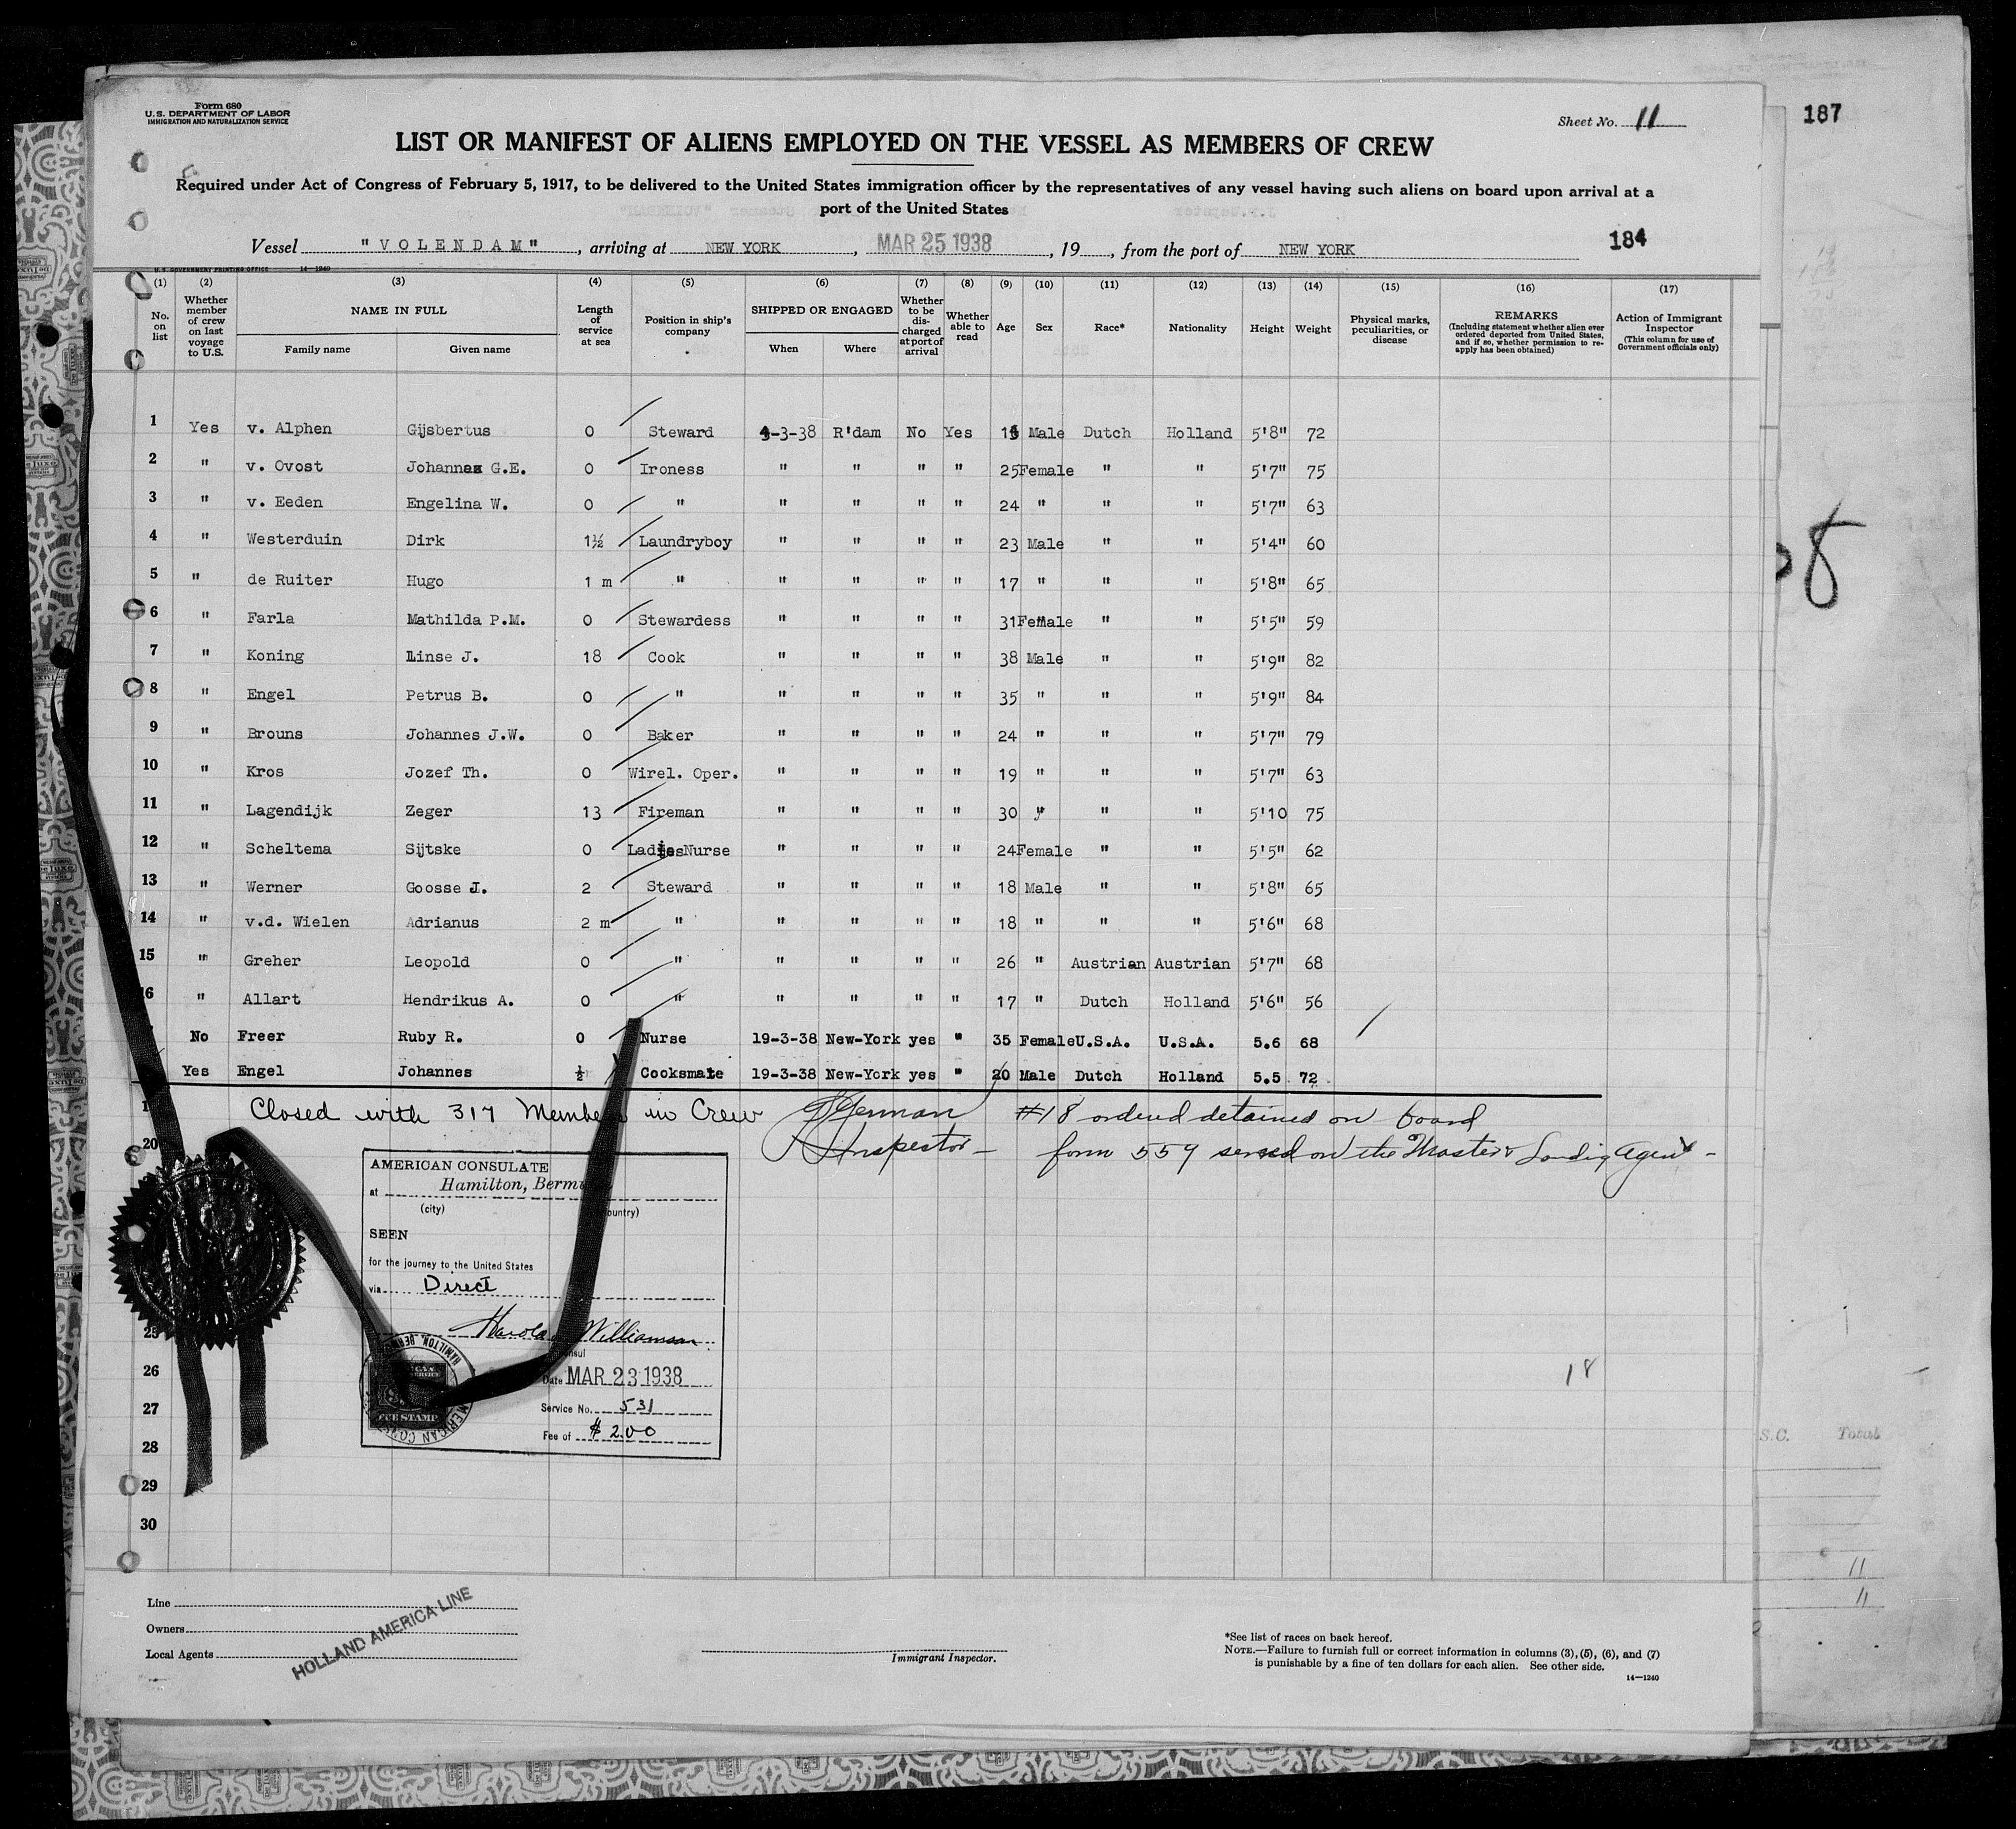 Form 680
U.S. DEPARTMENT OF LABOR
IMMIGRATION AND NATURALIZATION SERVICE
Sheet No. 11
187
LIST OR MANIFEST OF ALIENS EMPLOYED ON THE VESSEL AS MEMBERS OF CREW
Required under Act of Congress of February 5, 1917, to be delivered to the United States immigration officer by the representatives of any vessel having such aliens on board upon arrival at a
port of the United States
Vessel "VOLENDAM", arriving at NEW YORK, MAR 25 1938, 19, from the port of NEW YORK
184
U.S. GOVERNMENT PRINTING OFFICE 14—1240
(1) No. on list (2) Whether member of crew on last voyage to U.S. (3) NAME IN FULL Family name Given name (4) Length of service at sea (5) Position in ship's company (6) SHIPPED OR ENGAGED When Where (7) Whether to be discharged at port of arrival (8) Whether able to read (9) Age (10) Sex (11) Race* (12) Nationality (13) Height (14) Weight (15) Physical marks, peculiarities, or disease (16) REMARKS (Including statement whether alien ever ordered deported from United States, and if so, whether permission to reapply has been obtained) (17) Action of Immigrant Inspector (This column for use of Government officials only)
1 Yes v. Alphen Gijsbertus 0 Steward -3-38 R'dam No Yes Male Dutch Holland 5'8" 72
2 " v. Ovost G.E. 0 Ironess " " " " 25 Female " " 5'7" 75
3 " v. Eeden Engelina W. 0 " " " " " 24 " " " 5'7" 63
4 " Westerduin Dirk 1½ Laundryboy " " " " 23 Male " " 5'4" 60
5 " de Ruiter Hugo 1 m " " " " " 17 " " " 5'8" 65
6 " Farla Mathilda P.M. 0 Stewardess " " " " 31 Female " " 5'5" 59
7 " Koning Linse J. 18 Cook " " " " 38 Male " " 5'9" 82
8 " Engel Petrus B. 0 " " " " " 35 " " " 5'9" 84
9 " Brouns Johannes J.W. 0 Baker " " " " 24 " " " 5'7" 79
10 " Kros Jozef Th. 0 Wirel. Oper. " " " " 19 " " " 5'7" 63
11 " Lagendijk Zeger 13 Fireman " " " " 30 " " " 5'10 75
12 " Scheltema Sijtske 0 Ladies Nurse " " " " 24 Female " " 5'5" 62
13 " Werner Goosse J. 2 Steward " " " " 18 Male " " 5'8" 65
14 " v.d. Wielen Adrianus 2 m " " " " " 18 " " " 5'6" 68
15 " Greher Leopold 0 " " " " " 26 " Austrian Austrian 5'7" 68
16 " Allart Hendrikus A. 0 " " " " " 17 " Dutch Holland 5'6" 56
No Freer Ruby R. 0 Nurse 19-3-38 New-York yes " 35 Female U.S.A. U.S.A. 5.6 68
Yes Engel Johannes ½ Cooksmate 19-3-38 New-York yes " 20 Male Dutch Holland 5.5 72
Closed with 317 Members in Crew
Inspector
#18 ordered detained on board
form 559 served on the Master & Landing Agent
20
AMERICAN CONSULATE
at Hamilton, Bermu
(city) (country)
SEEN
for the journey to the United States
via Direct
Harold Williamson
Date MAR 23 1938
Service No. 531
Fee of $ 2.00
FEE STAMP
25
26
27
28
29
30
18
S.C. Total
11
11
Line
Owners
Local Agents
HOLLAND AMERICA LINE
Immigrant Inspector.
*See list of races on back hereof.
NOTE.—Failure to furnish full or correct information in columns (3), (5), (6), and (7)
is punishable by a fine of ten dollars for each alien. See other side.
14—1240